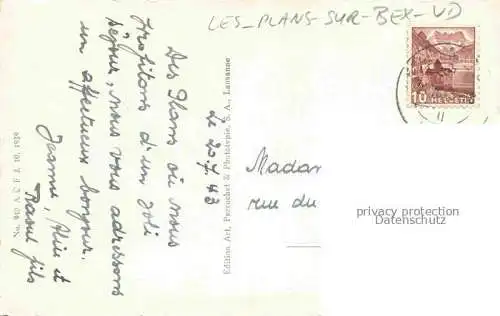 LES_PLANS-SUR-BEX-VD
10 HELVETIA
Des Plans où nous
profitons d'un joli
séjour, nous vous adressons
un affectueux bonjour.
Jeanne, Aline et
Raoul fils
No. A. C. F. L. 10.
Edition Art. Perrochet & Phototypie, S. A., Lausanne
Le 20.7.43
Madam
rue du
privacy protection
Datenschutz